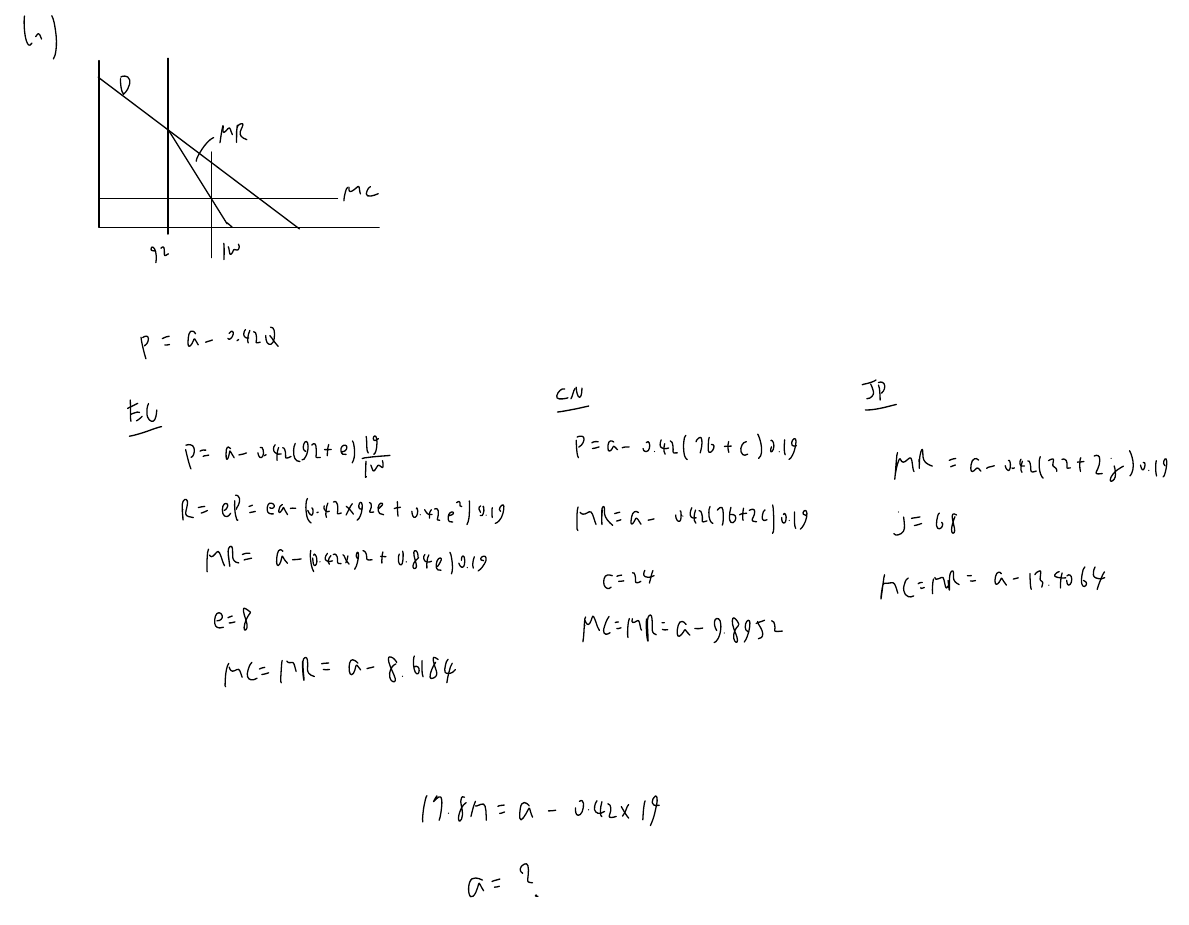 h)
D
MR
MC
92
100
P = a - 0.42Q
EU
P = a - 0.42(92 + e) 19/100
R = eP = ea - (0.42 x 92e + 0.42e²)0.19
MR = a - (0.42x92 + 0.84e)0.19
e = 8
MC = MR = a - 8.6184
CN
P = a - 0.42(76 + c)0.19
MR = a - 0.42(76 + 2c)0.19
c = 24
MC = MR = a - 9.8952
JP
MR = a - 0.42(32 + 2j)0.19
j = 68
MC = MR = a - 13.4064
= a - 0.42 x 19
a = ?